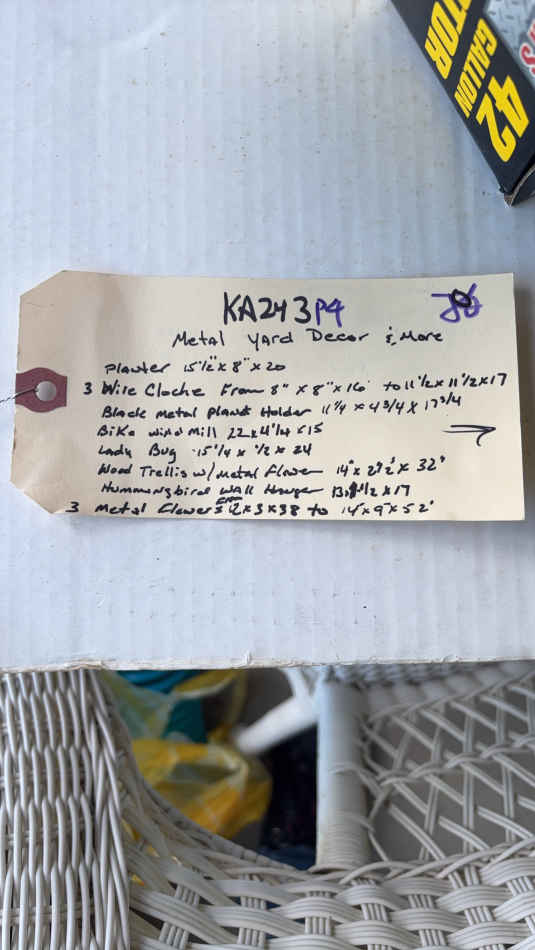 42
GALLON
TOR
KA243P4
Metal Yard Decor & More
Planter 15 1/2" x 8" x 20
3 Wire Cloche From 8" x 8" x 16" to 11 1/2 x 11 1/2 x 17
Black Metal Plant Holder 11 1/4 x 4 3/4 x 17 3/4
Bike Wind Mill 22 x 4 1/4 x 15
Lady Bug 15 1/4 x 1/2 x 24
Wood Trellis w/ Metal Flower 14" x 32"
Hummingbird Wall Hanger x 17
3 Metal Flowers From 12 x 3 x 38 to 14" x 9" x 52"